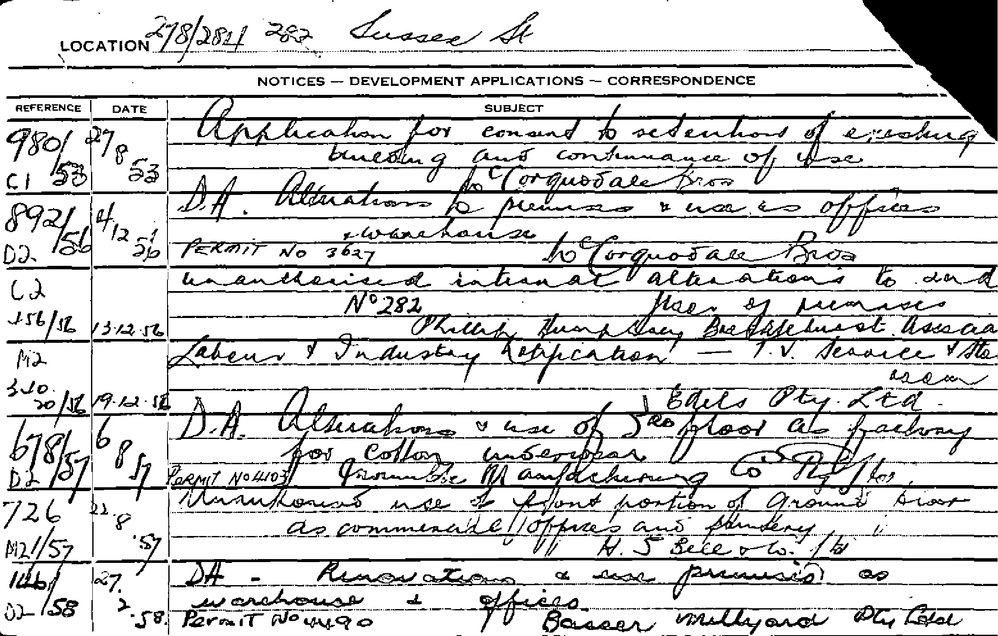 LOCATION 278/284 282 Sussex St
NOTICES — DEVELOPMENT APPLICATIONS — CORRESPONDENCE
REFERENCE DATE SUBJECT
980/53 27/8/53 Application for consent to retention of existing
building and continuance of use
C1 McCorquodale Bros
892/56 4/12/56 D.A. Alterations to premises & use as offices
& warehouse
D2 PERMIT No 3627 McCorquodale Bros
C2 unauthorised internal alterations to and
No 282 use of premises
156/56 13.12.56 Phillip
M2 Labour & Industry Notification — T.V. Service & Sto
room
20/56 19.12.56 Edels Pty. Ltd.
678/57 6/8/57 D.A. Alterations & use of 3RD floor as factory
for cotton underwear
D2 PERMIT No 4103 Manufacturing Co Pty Ltd
726 22.8.57 use of front portion of Ground Floor
as commercial offices and
M21/57 H. J Bell & Co. Ltd
27.2.58 DA - Renovations & use premises as
D2/58 warehouse & offices
Permit No 4490 Basser Millyard Pty Ltd